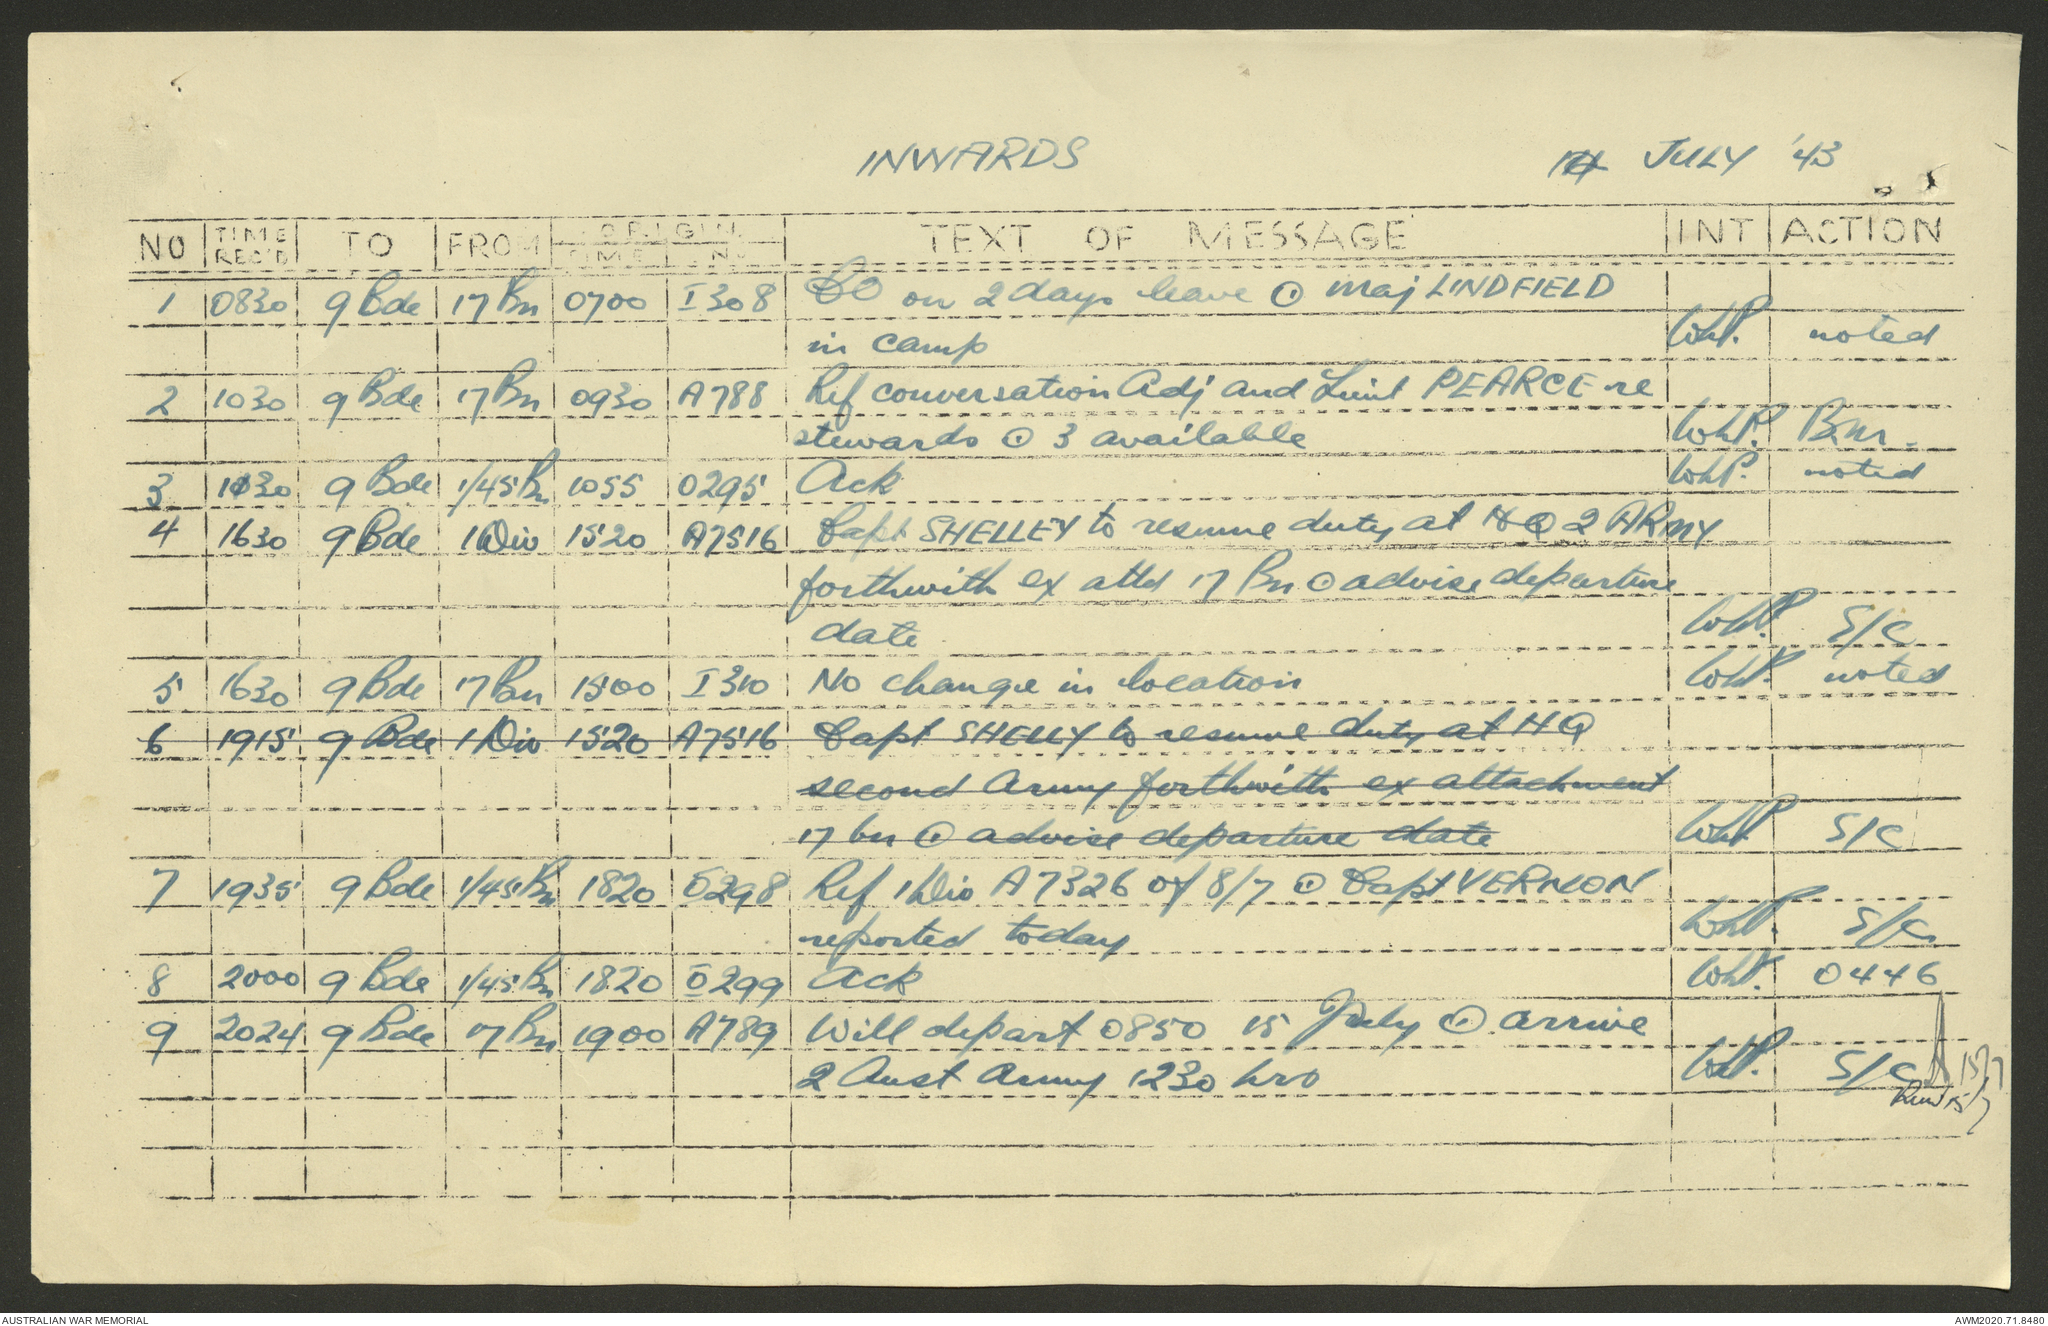 INWARDS 14 JULY '43
NO TIME REC'D TO FROM ORIGIN TIME NO TEXT OF MESSAGE INT ACTION
1 0830 9 Bde 17 Bn 0700 I308 CO on 2 days leave ⊙ Maj LINDFIELD
in camp WHP. noted
2 1030 9 Bde 17 Bn 0930 A788 Ref conversation Adj and Lieut PEARCE re
stewards ⊙ 3 available WHP. B.M.
3 1130 9 Bde 1/45 Bn 1055 O295 Ack WHP. noted
4 1630 9 Bde 1 Div 1520 A7516 Capt SHELLEY to resume duty at HQ 2 ARMY
forthwith ex attd 17 Bn ⊙ advise departure
date WHP. S/C
5 1630 9 Bde 17 Bn 1500 I310 No change in location WHP. noted
6 1915 9 Bde 1 Div 1520 A7516 Capt SHELLY to resume duty at HQ
second Army forthwith ex attachment
17 bn ⊙ advise departure date WHP S/C
7 1935 9 Bde 1/45 Bn 1820 O298 Ref 1 Div A7326 of 8/7 ⊙ Capt VERNON
reported today WHP. S/C
8 2000 9 Bde 1/45 Bn 1820 O299 Ack WHP. O446
9 2024 9 Bde 17 Bn 1900 A789 Will depart 0850 15 July ⊙ arrive
2 Aust Army 1230 hrs WHP. S/C 15/7
15/7
AUSTRALIAN WAR MEMORIAL AWM2020.71.8480